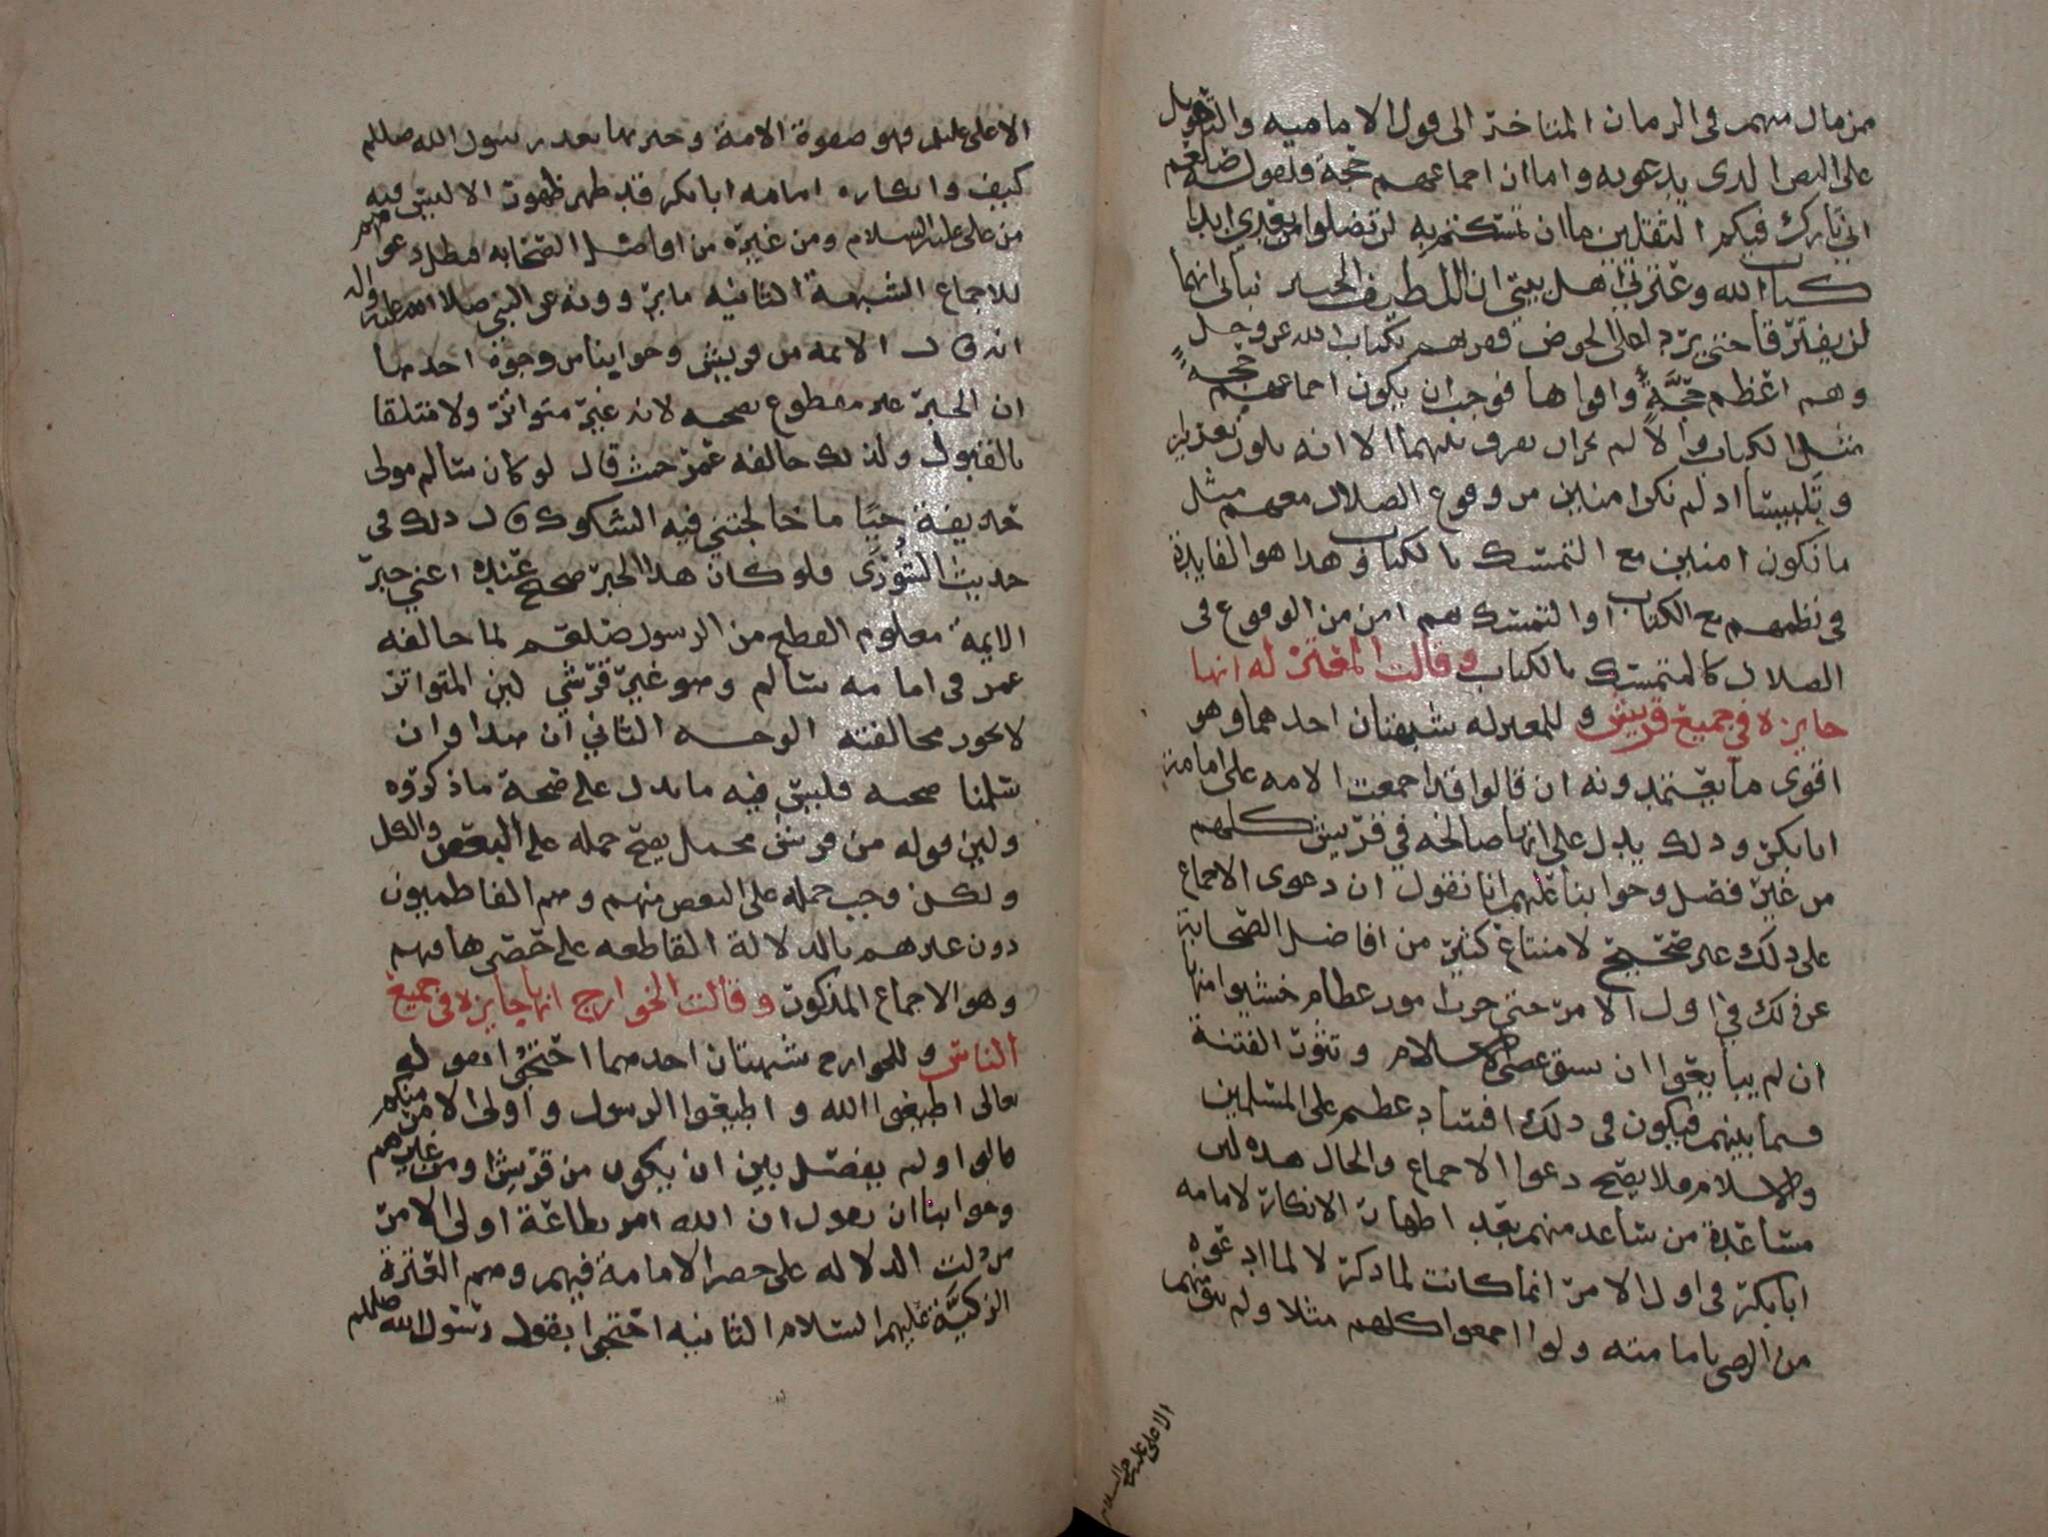 من مال منهم في الزمان المتاخر الى قول الامامية والتعويل
على النص الذي يدعونه واما ان اجماعهم حجة فلقوله صلعم
اني تارك فيكم الثقلين ما ان تمسكتم به لن تضلوا من بعدي ابدا
كتاب الله وعترتي اهل بيتي ان اللطيف الخبير نباني انهما
لن يفترقا حتى يردا على الحوض فقرنهم بكتاب الله عز وجل
وهم اعظم حجة واقواها فوجب ان يكون اجماعهم حجة
مثل الكتاب والا لم يجز ان يقرن بينهما الا انه يكون تغريرا
وتلبيسا اذ لم نكن امنين من وقوع الضلال معهم مثل
ما نكون امنين مع التمسك بالكتاب وهذا هو الفايدة
في نظمهم مع الكتاب او التمسك بهم امن من الوقوع في
الضلال كالمتمسك بالكتاب وقالت المعتزله انها
جايزه في جميع قريش وللمعتزله شبهتان احدهما وهو
اقوى ما يعتمدونه ان قالوا قد اجمعت الامه على امامة
ابا بكر وذلك يدل على انها صالحه في قريش كلهم
من غير فصل وجوابنا عليهم انا نقول ان دعوى الاجماع
على ذلك غير صحيح لامتناع كثير من افاضل الصحابة
عن ذلك في اول الامر حتى جرت امور عظام خشيوا منها
ان لم يبايعوا ان يشق عصى الاسلام وتثور الفتنة
فيما بينهم فيكون في ذلك افساد عظيم على المسلمين
والاسلام فلا يصح دعوا الاجماع والحال هذه لين
مساعدة من ساعد منهم بعد اظهار الانكار لامامه
ابا بكر في اول الامر انما كانت لما ذكر لا لما ادعوه
من الرضى بامامته ولو اجمعوا كلهم مثلا ولم يبق منهم
الا علي عليه السلام
الا علي عليلم فهو صفوة الامة وخيرها بعد رسول الله صللم
كيف وانكاره امامه ابا بكر قد ظهر ظهور الا لبس فيه
من علي عليه السلام ومن غيره من افاضل الصحابه فبطل دعواهم
للاجماع الشبهة الثانيه ما يروونه عن النبي صلا الله عليه واله
انه قال الايمه من قريش وجوابنا من وجوه احدها
ان الخبر غير مقطوع بصحته لانه غير متواتر ولا متلقا
بالقبول ولذلك خالفه عمر حيث قال لو كان سالم مولى
حذيفة حيا ما خالجتني فيه الشكوك قال ذلك في
حديث الشورى فلو كان هذا الخبر صحيح عنده اعني خبر
الايمة معلوم القطع من الرسول صلعم لما خالفه
عمر في امامه سالم وهو غير قرشي لين المتواتر
لا يجوز مخالفته الوجه الثاني ان هذا وان
سلمنا صحته فليس فيه ما يدل على صحة ما ذكروه
ولين قوله من قريش محمل يصح حمله على البعض والكل
ولكن وجب حمله على البعض منهم وهم الفاطميون
دون غيرهم بالدلالة القاطعه على حصرها فيهم
وهو الاجماع المذكور وقالت الخوارج انها جايزه في جميع
الناس وللخوارج شبهتان احدهما احتجوا بقوله
تعالى اطيعوا الله واطيعوا الرسول واولى الامر منكم
قالوا ولم يفصل بين ان يكون من قريش او من غيرهم
وجوابنا ان نقول ان الله امر بطاعة اولى الامر
من دلت الدلاله على حصر الامامة فيهم وهم العترة
الزكية عليهم السلام الثانيه احتجوا بقول رسول الله صللم